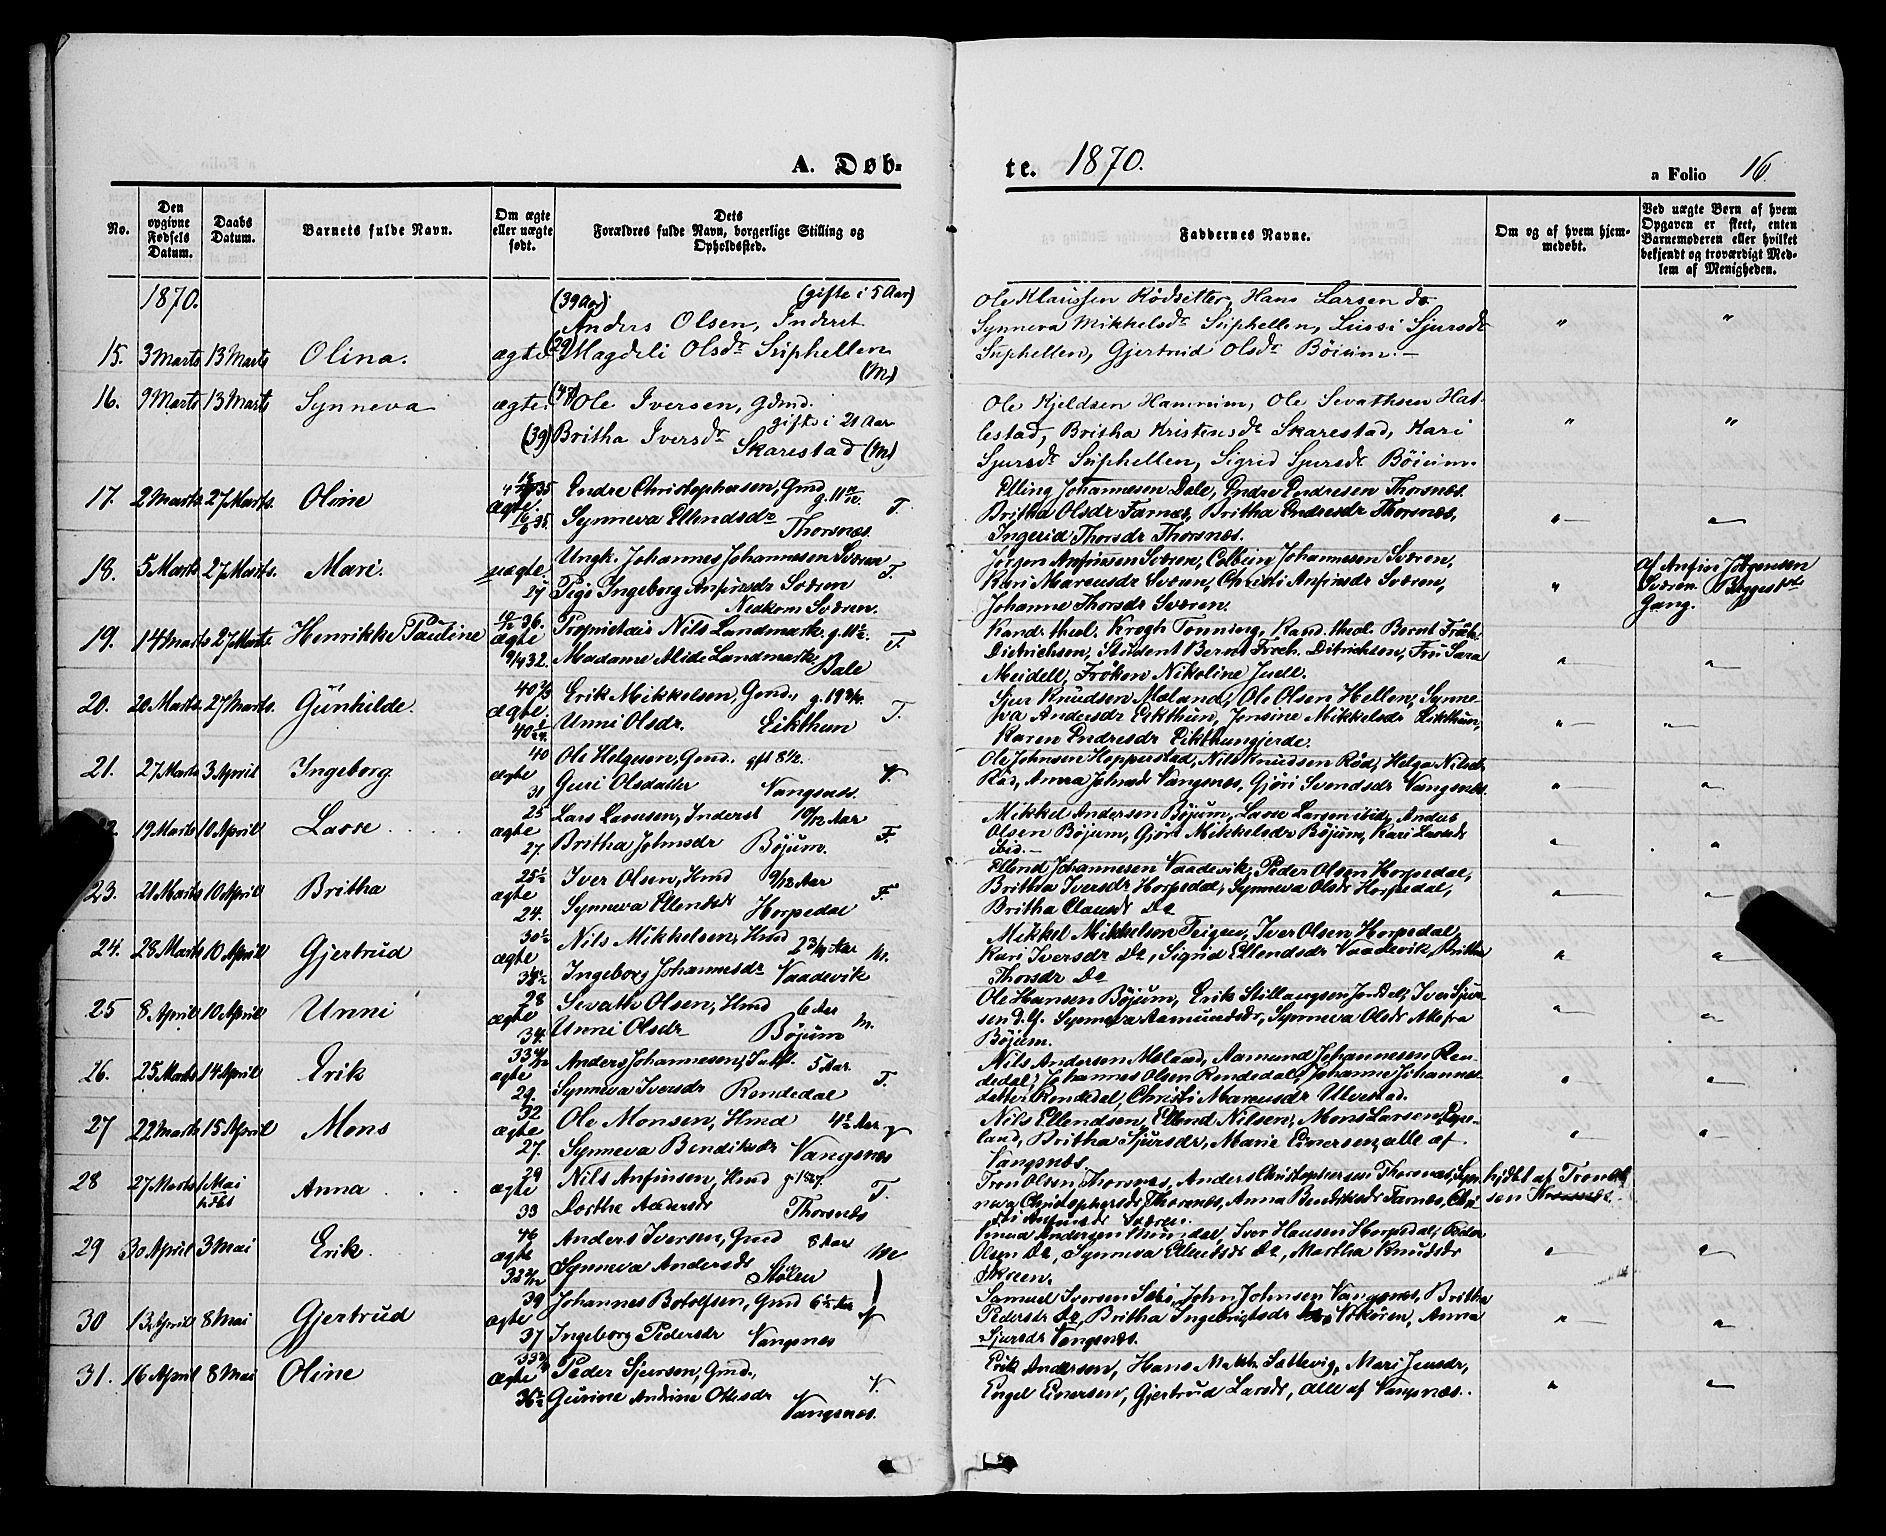 A. Døb-
te. 1870.
a Folio 16
No.
Den opgivne Fødsels Datum.
Daabs Datum.
Barnets fulde Navn.
Om ægte eller uægte født.
Dets Forældres fulde Navn, borgerlige Stilling og Opholdssted.
Faddernes Navne.
Om og af hvem hjemmedøbt.
Ved uægte Børn af hvem Opgaven er skeet, enten Barnemoderen eller hvilket bekjendt og troværdigt Medlem af Menigheden.
1870.
(39 Aar) (gifte i 5 Aar)
Anders Olsen, Inderst
15. 3 Marts 13 Marts Olina. ægte (29) Magdeli Olsdr Suphellen
(M)
Ole Klaussen Rödseter, Hans Larsen do
Synneva Mikkelsdr Suphellen, Lussi Sjursdr
Suphellen, Gjertrud Olsdr Böium.
16. 9 Marts 13 Marts Synneva ægte (47) Ole Iversen, Gdmd.
gifte i 21 Aar
(39) Britha Iversdr
Skarestad (M)
Ole Kjeldsen Hamrum, Ole Sevathsen Hat-
lestad, Britha Kristensdr Skarestad, Kari
Sjursdr Suphellen, Sigrid Sjursdr Böium.
17. 2 Marts 27 Marts. Oline ægte Endre Christophersen, Gmd
Synneva Ellendsdr Thorsnæs. T.
Elling Johannesen Dale, Endre Endresen Thorsnæs.
Britha Olsdr Farnæs, Britha Endresdr Thorsnæs,
Ingerid Thorsdr Thorsnæs.
18. 5 Marts 27 Marts. Mari. uægte Ungk. Johannes Johannesen Sværen T.
27 Pige Ingeborg Anfinsdr Sværen
Nedkom Sværen.
Jörgen Anfinnsen Sværen, Colbein Johannesen Sværen,
Kari Marcusdr Sværen, Christi Anfinsdr Sværen,
Johanne Thorsdr Sværen.
Af Anfin Jörgensen
Sværen. Begges 1ste
Gang.
19. 14 Marts 27 Marts Henrikke Pauline ægte Proprietair Nils Landmark.
9/4 32. Madame Alide Landmark Bale T.
Kand. theol. Krogh Tonning, Kand. theol. Bernt
Ditrichsen, Student Bernt Ditrichsen, Fru Sara
Meidell, Fröken Nikoline Juell.
20. 20 Marts. 27 Marts. Gunhilde. ægte Erik Mikkelsen, Gmd.,
Unni Olsdr. Eikthun T.
Sjur Knudsen Mæland, Ole Olsen Hellen, Synne-
va Andersdr Eikthun, Jensine Mikkelsdr Eikthun,
Karen Endresdr Eikthungjerde.
21. 27 Marts 3 April Ingeborg ægte 40 Ole Helgesen, Gmd. gft 8 1/2.
31 Guri Olsdatter Vangsnæs. V.
Ole Johnsen Hopperstad, Nils Knudsen Röd, Helga Nilsdr
Röd, Anna Johnsdr Vangsnæs, Gjöri Svendsdr Vangsnæs.
19 Marts 10 April Lasse ægte 25 Lars Larsen, Inderst 10/12 Aar
27. Britha Johnsdr Böjum. F.
Mikkel Andersen Böjum, Lasse Larsen ibid, Anders
Olsen Böjum, Gjöri Mikkelsdr Böjum, Kari Larsdr
ibid.
23. 21 Marts 10 April Britha ægte 25 1/2 Iver Olsen, Hmd 9/12 Aar
24. Synneva Ellensdr Horpedal F.
Ellend Johannesen Vaadevik, Peder Olsen Horpedal,
Brithа Iversdr Horpedal, Synneva Olsdr Horpedal,
Britha Clausdr Do
24. 28 Marts 10 April Gjertrud ægte 30 1/2 Nils Mikkelsen, Hmd
Ingeborg Johannesdr Vaadevik M.
Mikkel Mikkelsen Teigen, Iver Olsen Horpedal,
Kari Iversdr Do, Sigrid Ellendsdr Vaadevik, Britha
Thorsdr Do
25 8 April 10 April Unni ægte 28 Sevath Olsen, Hmd 6 Aar
34. Unni Olsdr Böjum M.
Ole Hansen Böjum, Erik Stillaugsen Jordal, Iver Sjur-
sen d.y. Synneva Aamundsdr, Synneva Olsdr Alle fra
Böjum.
26. 25 Marts 14 April Erik ægte Anders Johannesen, 5 Aar
29. Synneva Iversdr Rendedal T.
Nils Andersen Mæland, Aamund Johannesen Ren-
dedal, Johannes Olsen Rendedal, Johanne Johannes-
datter Rendedal, Christi Marcusdr Ulvestad.
27 22 Marts 15 April Mons ægte 32 Ole Monsen, Hmd 4 1/2 Aar
27. Synneva Bendiksdr Vangsnæs V
Nils Ellendsen, Ellend Nilsen, Mons Larsen
land, Britha Sjursdr, Marie Einersen, alle af
Vangsnæs.
28 27 Marts 1 Mai Anna ægte 29 Nils Anfinsen, Hmd
33 Dorthe Andersdr Thorsnæs T.
Tron Olsen Thorsnæs, Anders Christophersen Thorsnæs, Syn-
neva Christophersdr Thorsnæs, Anna Bendiksdr Farnæs, Chri-
sti Anfinsdr Sværen.
29 30 April 3 Mai Erik ægte 46 Anders Iversen, Gmd 8 Aar
Synneva Andersdr Stölen M
Andersen Mundal, Iver Hansen Horpedal, Peder
Olsen Do, Synneva Ellendsdr Do, Martha Knudsdr
Skreen.
30 13 April 8 Mai Gjertrud ægte 39 Johannes Botolfsen, Gmd 6 1/2 Aar
37 Ingeborg Pedersdr Vangsnæs V
Samuel Iversen Sæbi, John Johnsen Vangsnæs, Britha
Pedersdr Do, Britha Ingebrigtsdr Anna
Sjursdr Vangsnæs.
31. 16 April 8 Mai Oline ægte Peder Sjursen, Gmd.,
36 1/2 Gurine Andrine Olesdr Vangsnæs. V.
Erik Andersen, Hans Satlevig, Mari Jensdr,
Engel Einersen, Gjertrud Larsdr, alle af Vangsnæs.